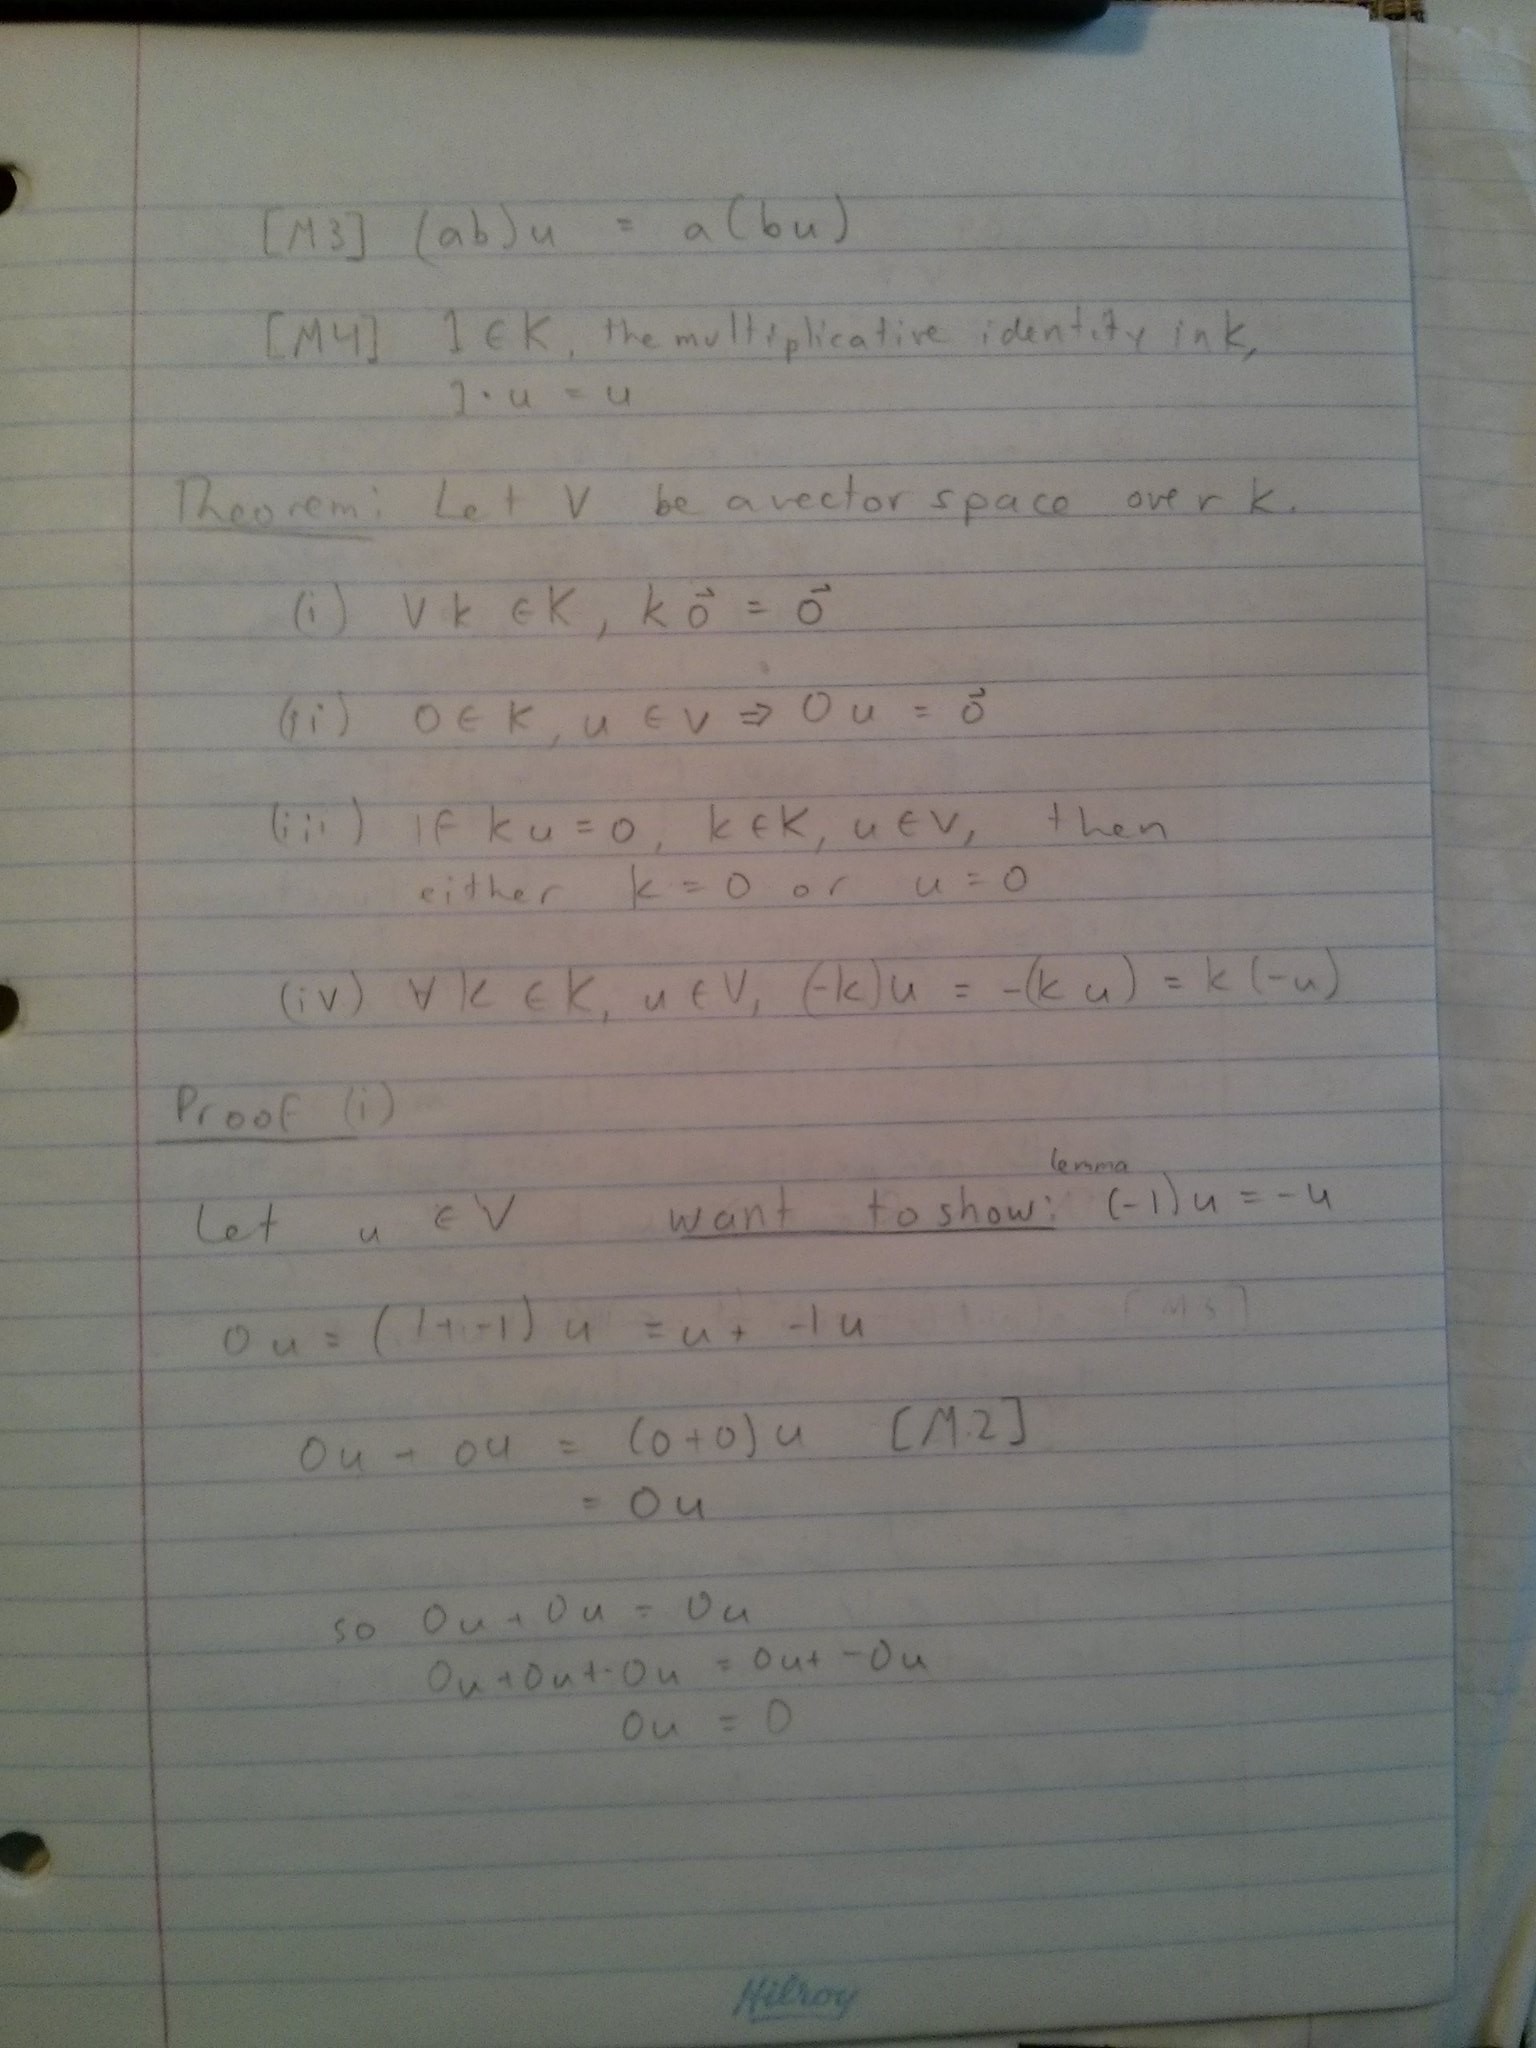 [M3] (ab)u = a(bu)
[M4] 1 ∈ K, the multiplicative identity in k,
1·u = u
Theorem: Let V be a vector space over k.
(i) ∀ k ∈ K, k0⃗ = 0⃗
(ii) 0 ∈ K, u ∈ V ⇒ 0u = 0⃗
(iii) if ku = 0, k ∈ K, u ∈ V, then
either k = 0 or u = 0
(iv) ∀ k ∈ K, u ∈ V, (-k)u = -(ku) = k(-u)
Proof (i)
lemma
Let u ∈ V want to show: (-1)u = -u
0u = (1+-1)u = u + -1u
0u + 0u = (0+0)u [M2]
= 0u
so 0u + 0u = 0u
0u+0u+-0u = 0u+ -0u
0u = 0
Hilroy